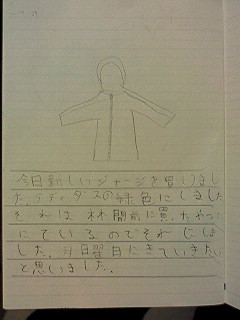 今日新しいジャージを買いました
た。アディダスの緑色にしました
それは 木木 間前に買ったやつ
にているのでそれにほ
した。月曜日にきていきたい
と思いました。